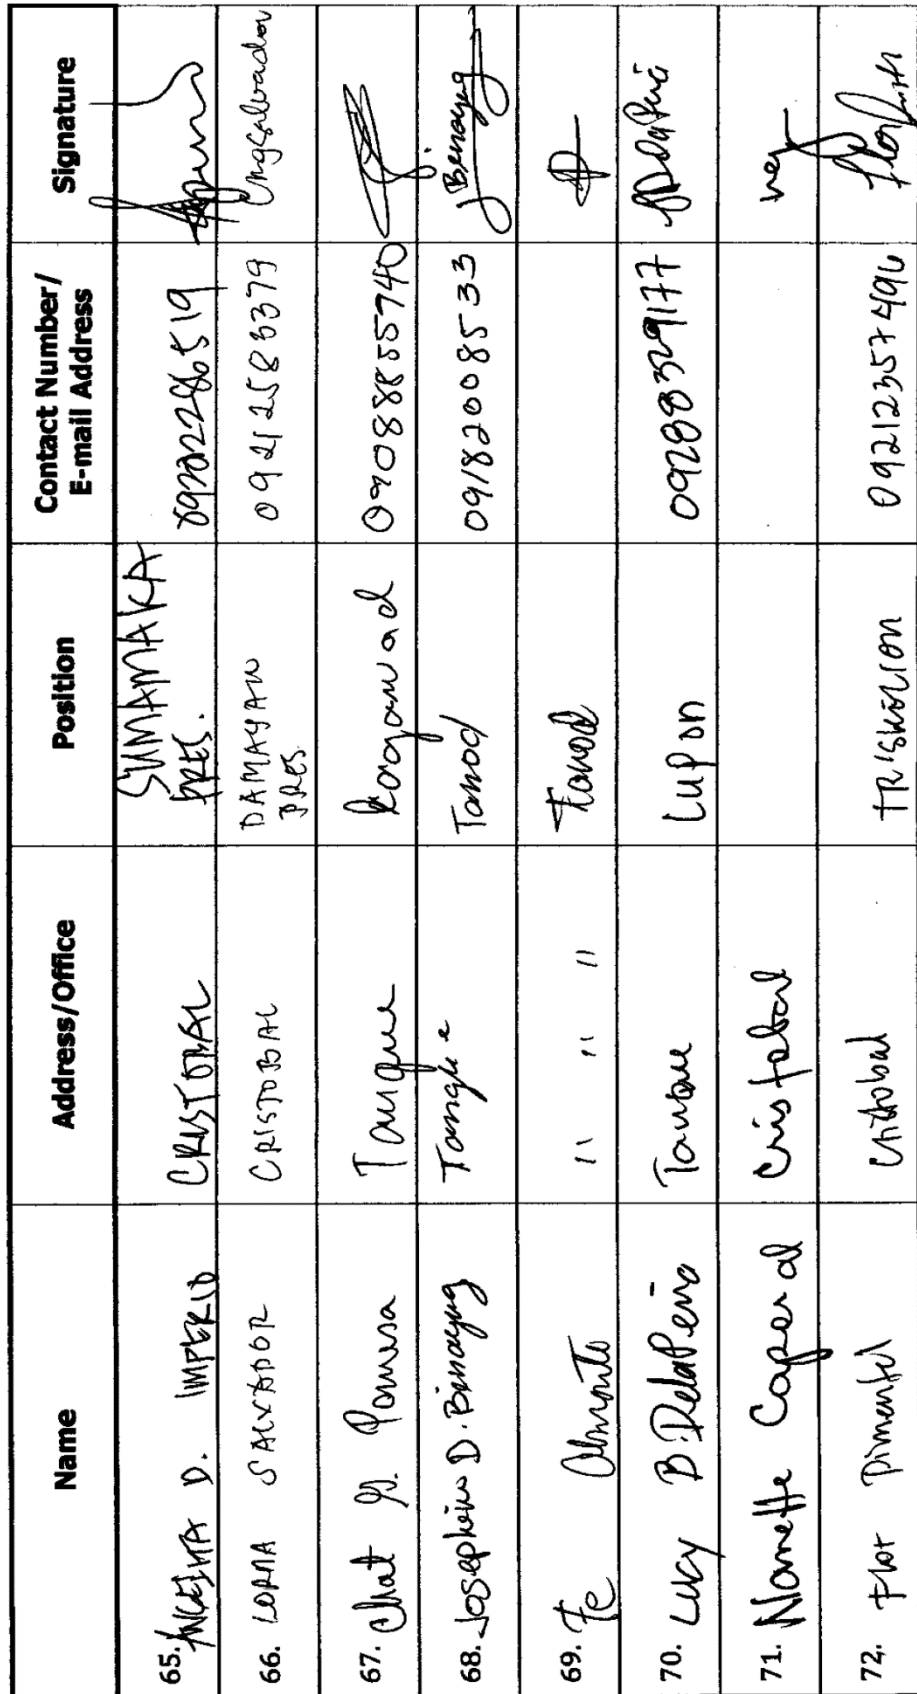 Name Address/Office Position Contact Number/ E-mail Address Signature
65. D. IMPERIO CRISTOBAL SUMAMAKA PRES.
66. LORNA SALVADOR CRISTOBAL DAMAYAN PRES. Lmgsalvador
67. Chat Tanque Kagawad 09088855740
68. Josephine D. Binayug Tangue Tanod 09182008533 JBenayug
69. Fe Almonte " " " Tanod
70. Lucy B. Dela Peña Tanque Lupon 09288329177
71. Nanette Caperal Cristobal
72. Flor Pimentel Cristobal 09212357496